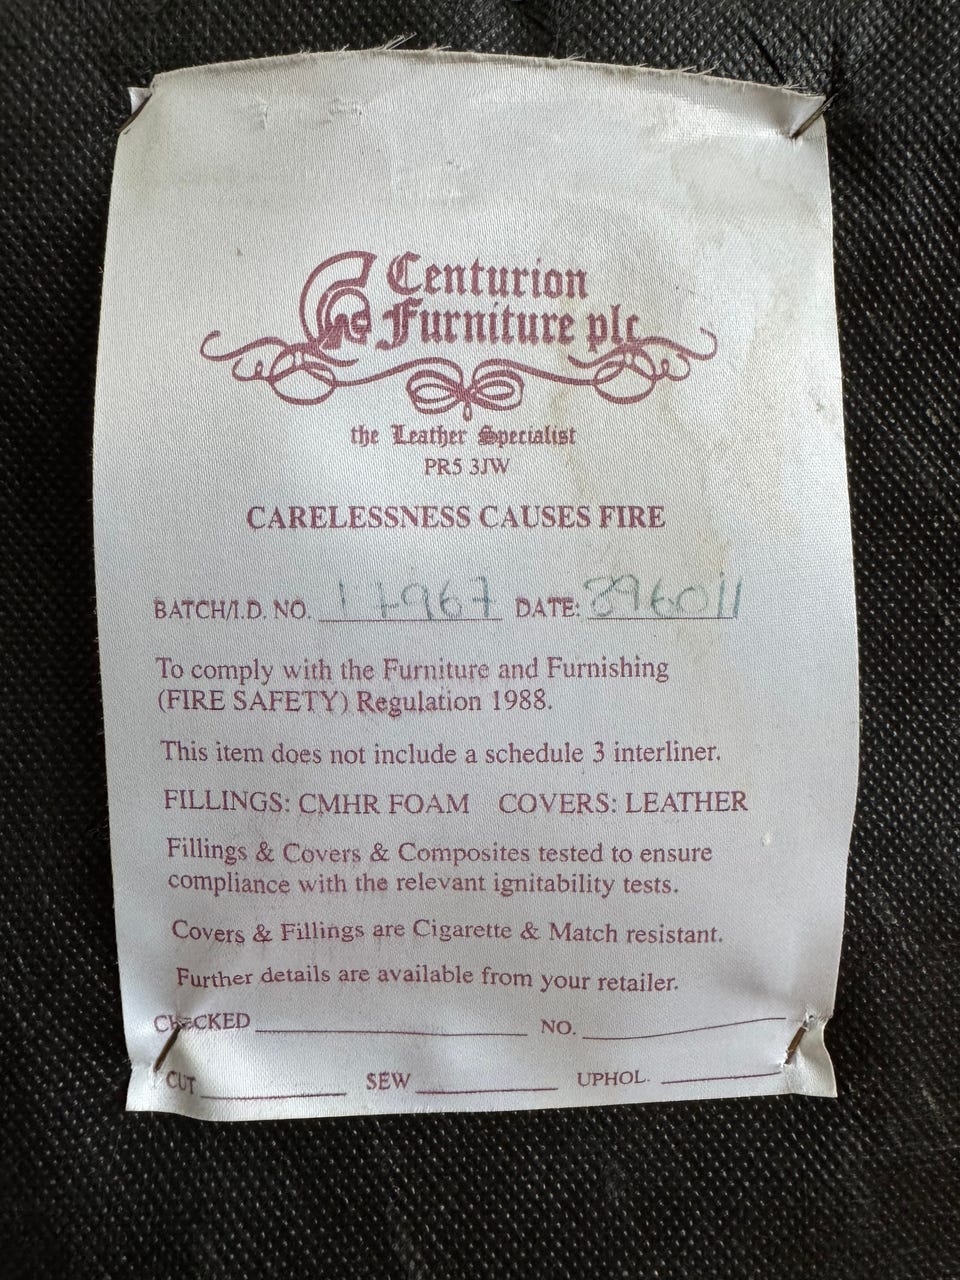 Centurion
Furniture plc
the Leather Specialist
PR5 3JW
CARELESSNESS CAUSES FIRE
BATCH/I.D. NO. 17967 DATE:
To comply with the Furniture and Furnishing
(FIRE SAFETY) Regulation 1988.
This item does not include a schedule 3 interliner.
FILLINGS: CMHR FOAM COVERS: LEATHER
Fillings & Covers & Composites tested to ensure
compliance with the relevant ignitability tests.
Covers & Fillings are Cigarette & Match resistant.
Further details are available from your retailer.
CHECKED NO.
CUT SEW UPHOL.